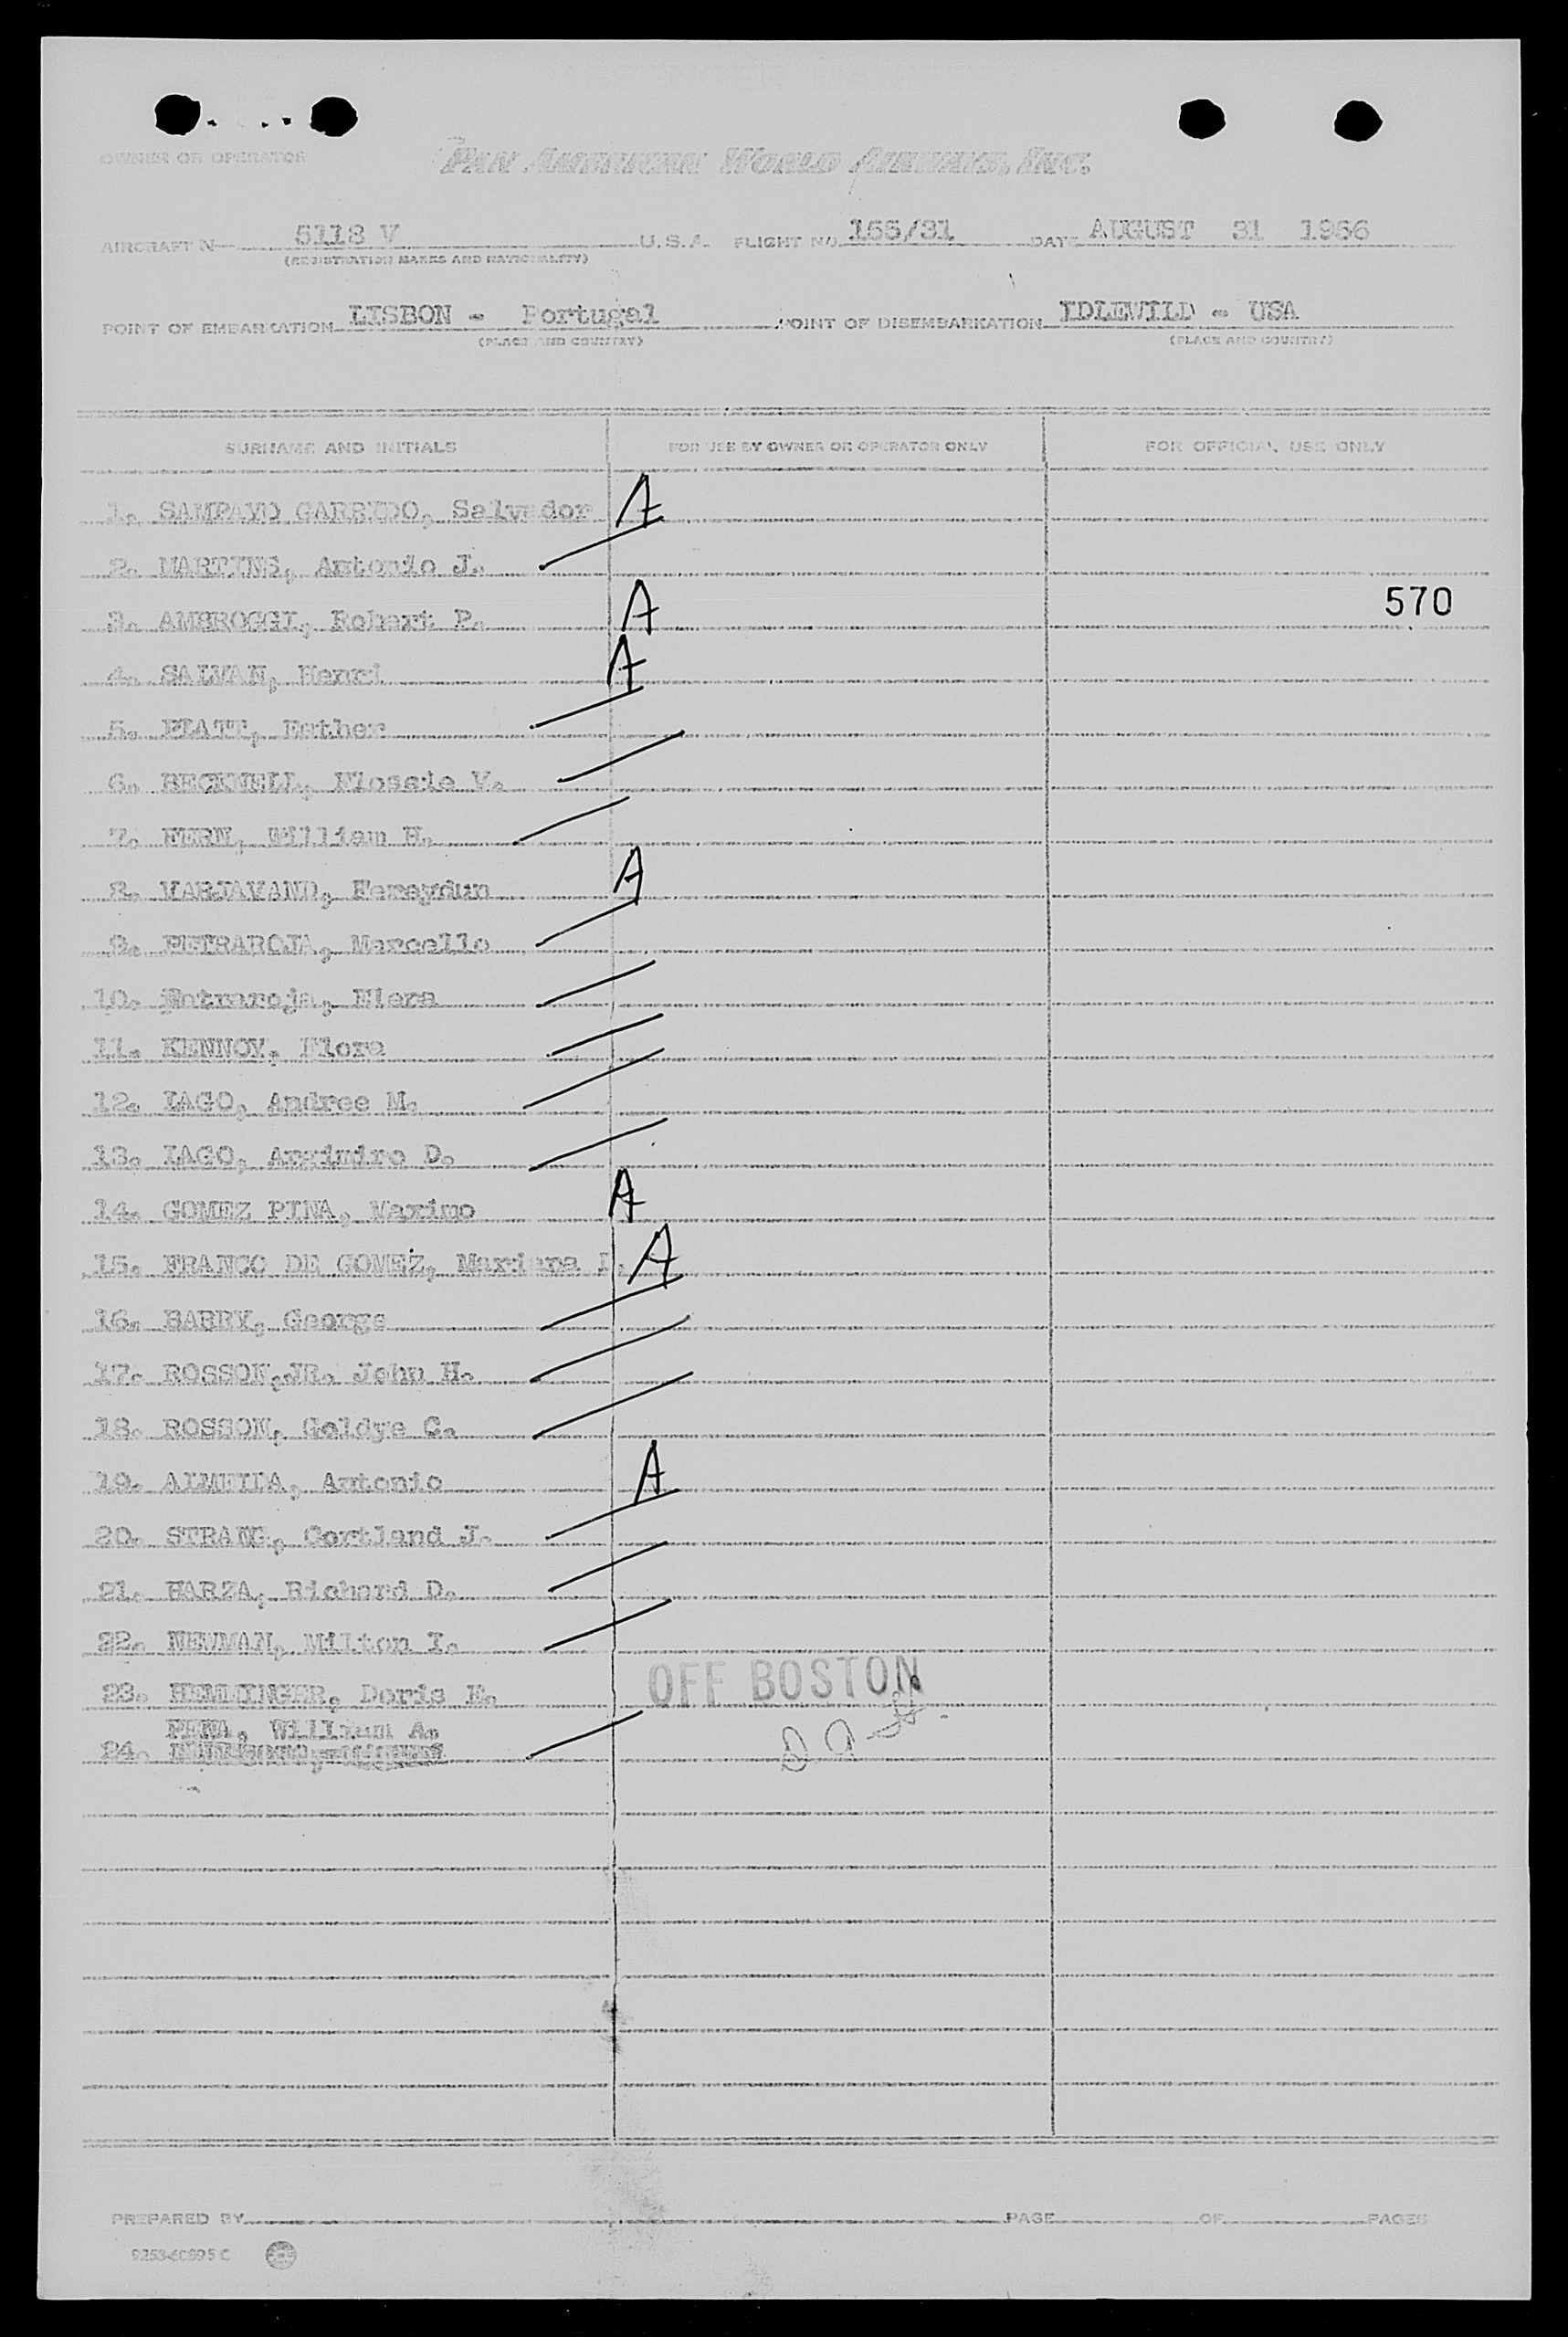 OWNER OR OPERATOR PAN AMERICAN WORLD AIRWAYS, INC.
AIRCRAFT N 5118 V U.S.A. FLIGHT NO. 155/31 DATE AUGUST 31 1956
(REGISTRATION MARKS AND NATIONALITY)
POINT OF EMBARKATION LISBON - Portugal POINT OF DISEMBARKATION IDLEWILD - USA
(PLACE AND COUNTRY) (PLACE AND COUNTRY)
SURNAME AND INITIALS FOR USE BY OWNER OR OPERATOR ONLY FOR OFFICIAL USE ONLY
1. SAMPAYO GARRIDO, Salvador A
2. MARTINS, Antonio J.
3. AMBROGGI, Robert P. A 570
4. SALVAN, Henri A
5. PLATT, Esther
6. BECKNELL, Flossie V.
7. FERN, William H.
8. VARJAVAND, Fereydun A
9. PETRAROJA, Marcello
10. Petraroja, Piera
11. KENNOY, Flora
12. IAGO, Andree M.
13. IAGO, Argimiro D.
14. GOMEZ PINA, Maximo A
15. FRANCO DE GOMEZ, Mariana A
16. BARRY, George
17. ROSSON, JR. John H.
18. ROSSON, Goldye C.
19. ALMEIDA, Antonio A
20. STRANG, Cortland J.
21. HARZA, Richard D.
22. NEWMAN, Milton I.
23. HEMMINGER, Doris E. OFF BOSTON
PENA, William A.
24.
PREPARED BY PAGE OF PAGES